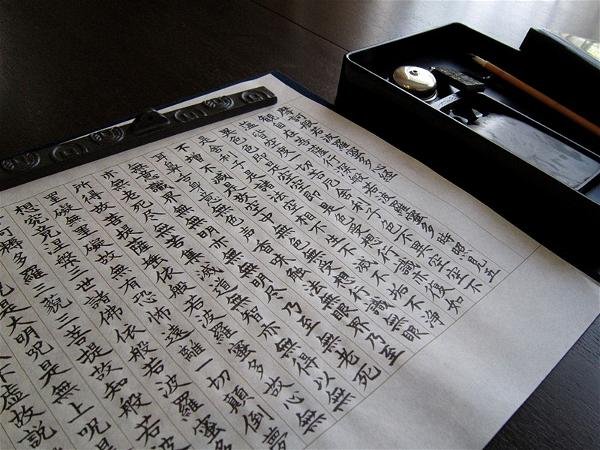 摩訶般若波羅蜜多心経
観自在菩薩行深般若波羅蜜多時照見五
蘊皆空度一切苦厄舎利子色不異空空不
異色色即是空空即是色受想行識亦復如
是舎利子是諸法空相不生不滅不垢不浄
不増不減是故空中無色無受想行識無眼
耳鼻舌身意無色声香味触法無眼界乃至
無意識界無無明亦無無明尽乃至無老死
亦無老死尽無苦集滅道無智亦無得以無
所得故菩提薩埵依般若波羅蜜多故心無
罣礙無罣礙故無有恐怖遠離一切顛倒夢
想究竟涅槃三世諸佛依般若波羅蜜多
耨多羅三藐三菩提故知般若波
是大明呪是無上呪是
不虚故説